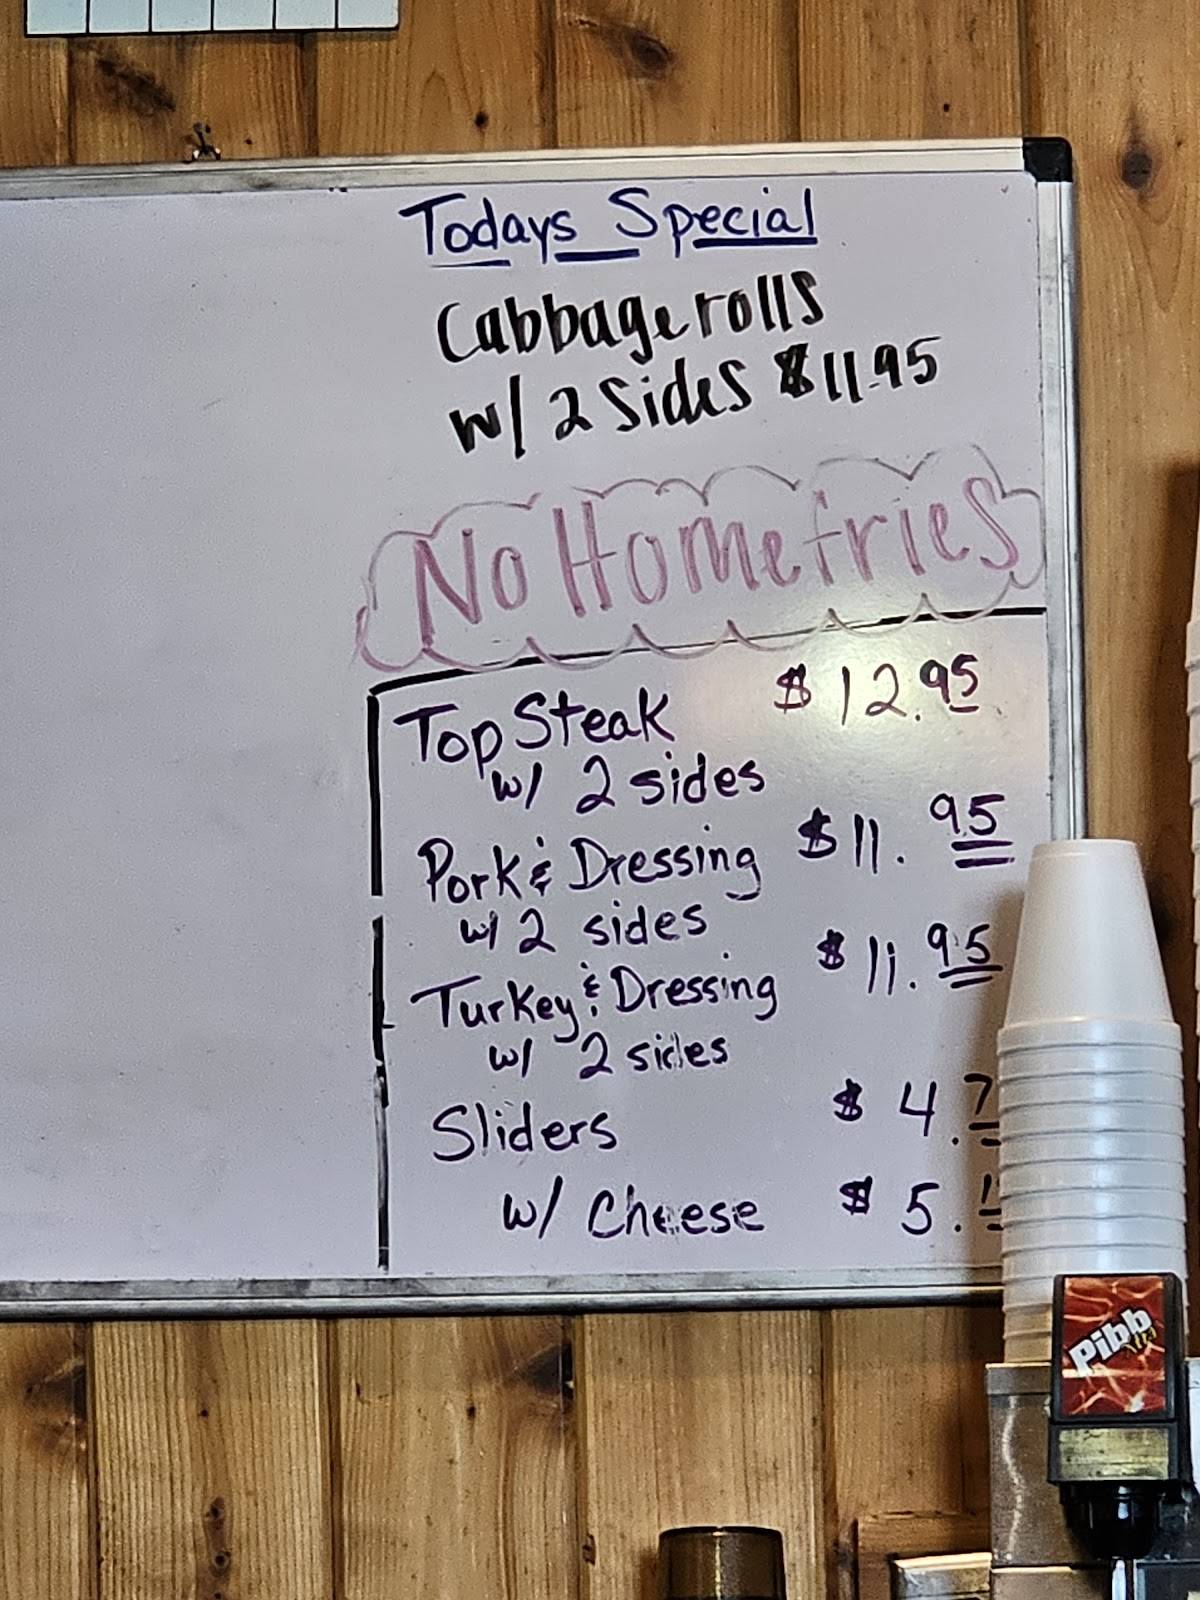 Todays Special
Cabbage rolls
w/ 2 sides $11.95
No Homefries
Top Steak $12.95
w/ 2 sides
Pork & Dressing $11.95
w/ 2 sides
Turkey & Dressing $11.95
w/ 2 sides
Sliders $4.7
w/ Cheese $5.
Pibb